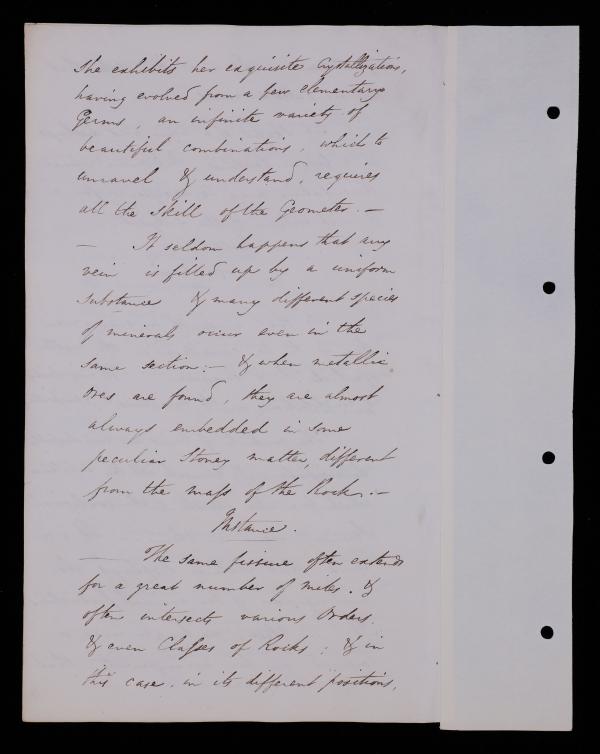 She exhibits her exquisite Crystallizations,
having evolved from a few elementary
Germs, an infinite variety of
beautiful combinations, which to
unravel & understand, requires
all the skill of the Geometer. —
— It seldom happens that any
vein is filled up by a uniform
substance & many different species
of minerals occur even in the
same section: — & when metallic
ores are found, they are almost
always embedded in some
peculiar Stoney matter, different
from the mass of the Rock. —
Instance.
— The same fissure often extends
for a great number of miles. &
often intersects various Orders
& even Classes of Rocks: & in
this case, in its different positions,